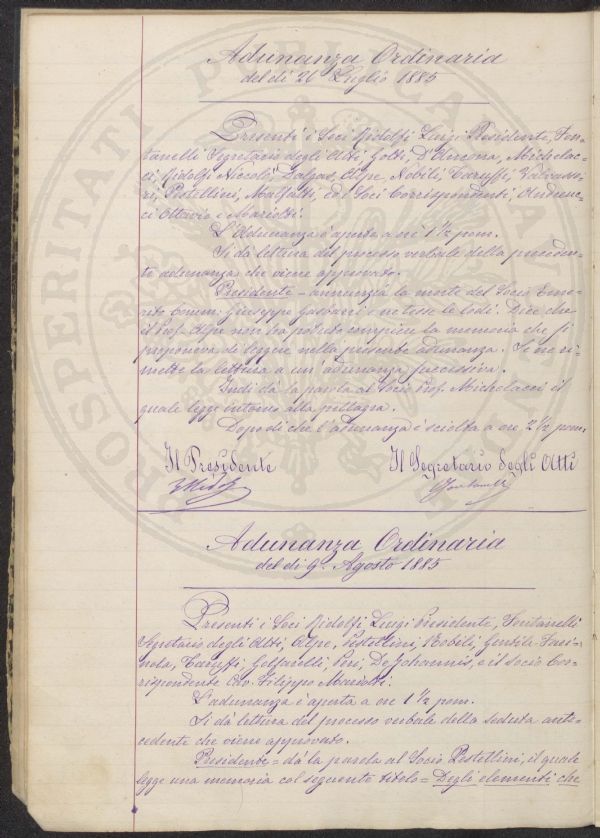 Adunanza Ordinaria
del dì 26 Luglio 1885
Presenti i Soci Ridolfi Luigi Presidente, Fon=
tanelli Segretario degli Atti, Gotti, D'Ancona, Michelac=
ci, Ridolfi Niccolò, Dalgas, Alpe, Nobili, Caruffi,
ri, Pestellini, Malfatti, ed i Soci Corrispondenti, Andreuc=
ci Ottavio e Mariotti.
L'Adunanza è aperta a ore 1 1/2 pom.
Si dà lettura del processo verbale della preceden=
te adunanza che viene approvato.
Presidente = annunzia la morte del Socio Eme=
rito Comm: Giuseppe Gasbarri e ne tesse le lodi. Dice che
il Prof. Alpe non ha potuto compiere la memoria che si
proponeva di leggere nella presente adunanza. Se ne ri=
mette la lettura a un'adunanza successiva.
Indi dà la parola al Socio Prof. Michelacci il
quale legge intorno alla pellagra.
Dopo di che l'adunanza è sciolta a ore 2 1/2 pom.
Il Presidente Il Segretario Degli Atti
L Ridolfi Fontanelli
Adunanza Ordinaria
del dì 9 Agosto 1885
Presenti i Soci Ridolfi Luigi Presidente, Fontanelli
Segretario degli Atti, Alpe, Pestellini, Nobili, Gentile Fari=
nola, Caruffi, Golfarelli, Peri, De Johannis, e il socio Cor=
rispondente Cav. Filippo Mariotti.
L'adunanza è aperta a ore 1 1/2 pom.
Si dà lettura del processo verbale della seduta ante=
cedente che viene approvato.
Presidente = dà la parola al Socio Pestellini, il quale
legge una memoria col seguente titolo = Degli elementi che
PROSPERITATI PUBLICAE AUGENDAE